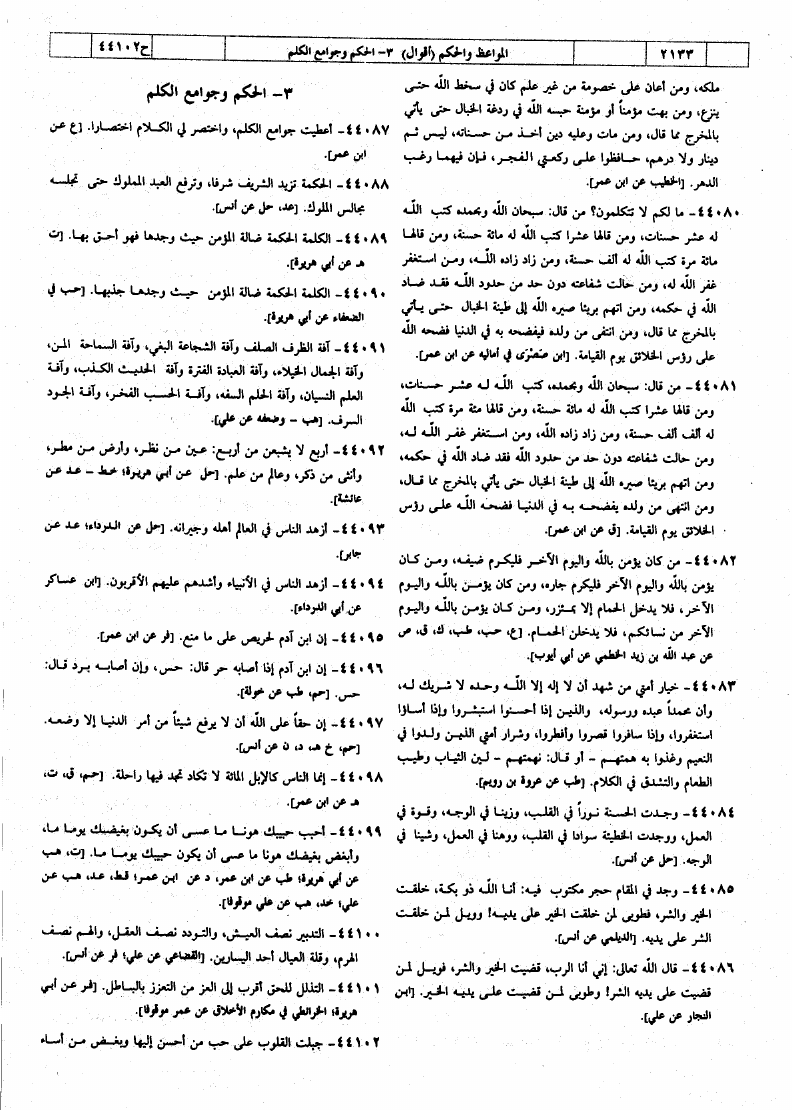 ٢١٣٣
المواعظ والحكم (أقوال) ٣- الحكم وجوامع الكلم
ح٤٤١٠٢
ملكه، ومن أعان على خصومة من غير علم كان في سخط الله حتى
ينزع، ومن بهت مؤمناً أو مؤمنة حبسه الله في ردغة الخبال حتى يأتي
بالمخرج مما قال، ومن مات وعليه دين أخذ من حسناته، ليس ثم
دينار ولا درهم، حافظوا على ركعتي الفجر، فإن فيهما رغب
الدهر. [الخطيب عن ابن عمر].
٤٤٠٨٠- ما لكم لا تتكلمون؟ من قال: سبحان الله وبحمده كتب الله
له عشر حسنات، ومن قالها عشرا كتب الله له مائة حسنة، ومن قالها
مائة مرة كتب الله له ألف حسنة، ومن زاد زاده الله، ومن استغفر
غفر الله له، ومن حالت شفاعته دون حد من حدود الله فقد ضاد
الله في حكمه، ومن اتهم بريئا صيره الله إلى طينة الخبال حتى يأتي
بالمخرج مما قال، ومن انتفى من ولده فيفضحه به في الدنيا فضحه الله
على رؤس الخلائق يوم القيامة. [ابن صَصْرَى في أماليه عن ابن عمر].
٤٤٠٨١- من قال: سبحان الله وبحمده، كتب الله له عشر حسنات،
ومن قالها عشرا كتب الله له مائة حسنة، ومن قالها مئة مرة كتب الله
له ألف ألف حسنة، ومن زاد زاده الله، ومن استغفر غفر الله له،
ومن حالت شفاعته دون حد من حدود الله فقد ضاد الله في حكمه،
ومن اتهم بريئا صيره الله إلى طينة الخبال حتى يأتي بالمخرج مما قال،
ومن انتهى من ولده يفضحه به في الدنيا فضحه الله على رؤس
الخلائق يوم القيامة. [ق عن ابن عمر].
٤٤٠٨٢- من كان يؤمن بالله واليوم الآخر فليكرم ضيفه، ومن كان
يؤمن بالله واليوم الآخر فليكرم جاره، ومن كان يؤمن بالله واليوم
الآخر، فلا يدخل الحمام إلا بمئزر، ومن كان يؤمن بالله واليوم
الآخر من نسائكم، فلا يدخلن الحمام. [ع، حب، طب، ك، ق، ص
عن عبد الله بن زيد الخطمي عن أبي أيوب].
٤٤٠٨٣- خيار أمتي من شهد أن لا إله إلا الله وحده لا شريك له،
وأن محمداً عبده ورسوله، والذين إذا أحسنوا استبشروا وإذا أساؤا
استغفروا، وإذا سافروا قصروا وأفطروا، وشرار أمتي الذين ولدوا في
النعيم وغذوا به همتهم – أو قال: نهمتهم – لين الثياب وطيب
الطعام والتشدق في الكلام. [طب عن عروة بن رويم].
٤٤٠٨٤- وجدت الحسنة نوراً في القلب، وزينا في الوجه، وقوة في
العمل، ووجدت الخطيئة سوادا في القلب، ووهنا في العمل، وشينا في
الوجه. [حل عن أنس].
٤٤٠٨٥- وجد في المقام حجر مكتوب فيه: أنا الله ذو بكة، خلقت
الخير والشر، فطوبى لمن خلقت الخير على يديه! وويل لمن خلقت
الشر على يديه. [الديلمي عن أنس].
٤٤٠٨٦- قال الله تعالى: إني أنا الرب، قضيت الخير والشر، فويل لمن
قضيت على يديه الشر! وطوبى لمن قضيت على يديه الخير. [ابن
النجار عن علي].
٣- الحكم وجوامع الكلم
٤٤٠٨٧- أعطيت جوامع الكلم، واختصر لي الكلام اختصارا. [ع عن
ابن عمر].
٤٤٠٨٨- الحكمة تزيد الشريف شرفا، وترفع العبد المملوك حتى تجلسه
مجالس الملوك. [عد، حل عن أنس].
٤٤٠٨٩- الكلمة الحكمة ضالة المؤمن حيث وجدها فهو أحق بها. [ت
هـ عن أبي هريرة].
٤٤٠٩٠- الكلمة الحكمة ضالة المؤمن حيث وجدها جذبها. [حب في
الضعفاء عن أبي هريرة].
٤٤٠٩١- آفة الظرف الصلف وآفة الشجاعة البغي، وآفة السماحة المن،
وآفة الجمال الخيلاء، وآفة العبادة الفترة وآفة الحديث الكذب، وآفة
العلم النسيان، وآفة الحلم السفه، وآفة الحسب الفخر، وآفة الجود
السرف. [هب – وضعفه عن علي].
٤٤٠٩٢- أربع لا يشبعن من أربع: عين من نظر، وأرض من مطر،
وأنثى من ذكر، وعالم من علم. [حل عن أبي هريرة؛ خط – عد عن
عائشة].
٤٤٠٩٣- أزهد الناس في العالم أهله وجيرانه. [حل عن الدرداء؛ عد عن
جابر].
٤٤٠٩٤- أزهد الناس في الأنبياء وأشدهم عليهم الأقربون. [ابن عساكر
عن أبي الدرداء].
٤٤٠٩٥- إن ابن آدم لحريص على ما منع. [فر عن ابن عمر].
٤٤٠٩٦- إن ابن آدم إذا أصابه حر قال: حس، وإن أصابه برد قال:
حس. [حم، طب عن خولة].
٤٤٠٩٧- إن حقاً على الله أن لا يرفع شيئاً من أمر الدنيا إلا وضعه.
[حم، خ هـ، د، ن عن أنس].
٤٤٠٩٨- إنما الناس كالإبل المائة لا تكاد تجد فيها راحلة. [حم، ق، ت،
هـ عن ابن عمر].
٤٤٠٩٩- أحبب حبيبك هونا ما عسى أن يكون بغيضك يوما ما،
وأبغض بغيضك هونا ما عسى أن يكون حبيبك يوما ما. [ت، هب
عن أبي هريرة؛ طب عن ابن عمر، د عن ابن عمر؛ قط، عد، هب عن
علي؛ خد، هب عن علي موقوفا].
٤٤١٠٠- التدبير نصف العيش، والتودد نصف العقل، والهم نصف
الهرم، وقلة العيال أحد اليسارين. [القضاعي عن علي؛ فر عن أنس].
٤٤١٠١- التذلل للحق أقرب إلى العز من التعزز بالباطل. [فر عن أبي
هريرة؛ الخرائطي في مكارم الأخلاق عن عمر موقوفا].
٤٤١٠٢- جبلت القلوب على حب من أحسن إليها وبغض من أساء